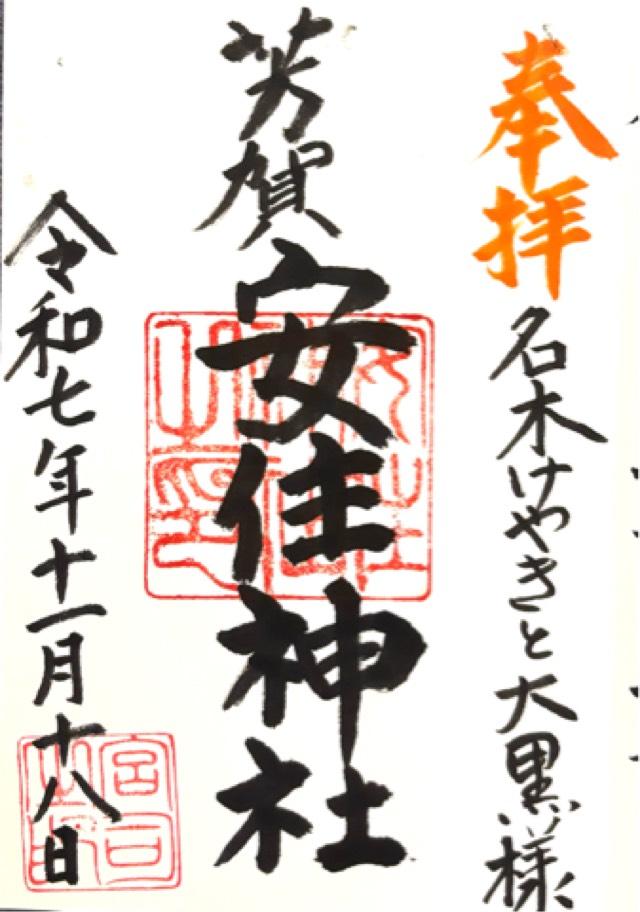 奉拝
名木けやきと大黒様
芳賀
安住神社
令和七年十一月十八日